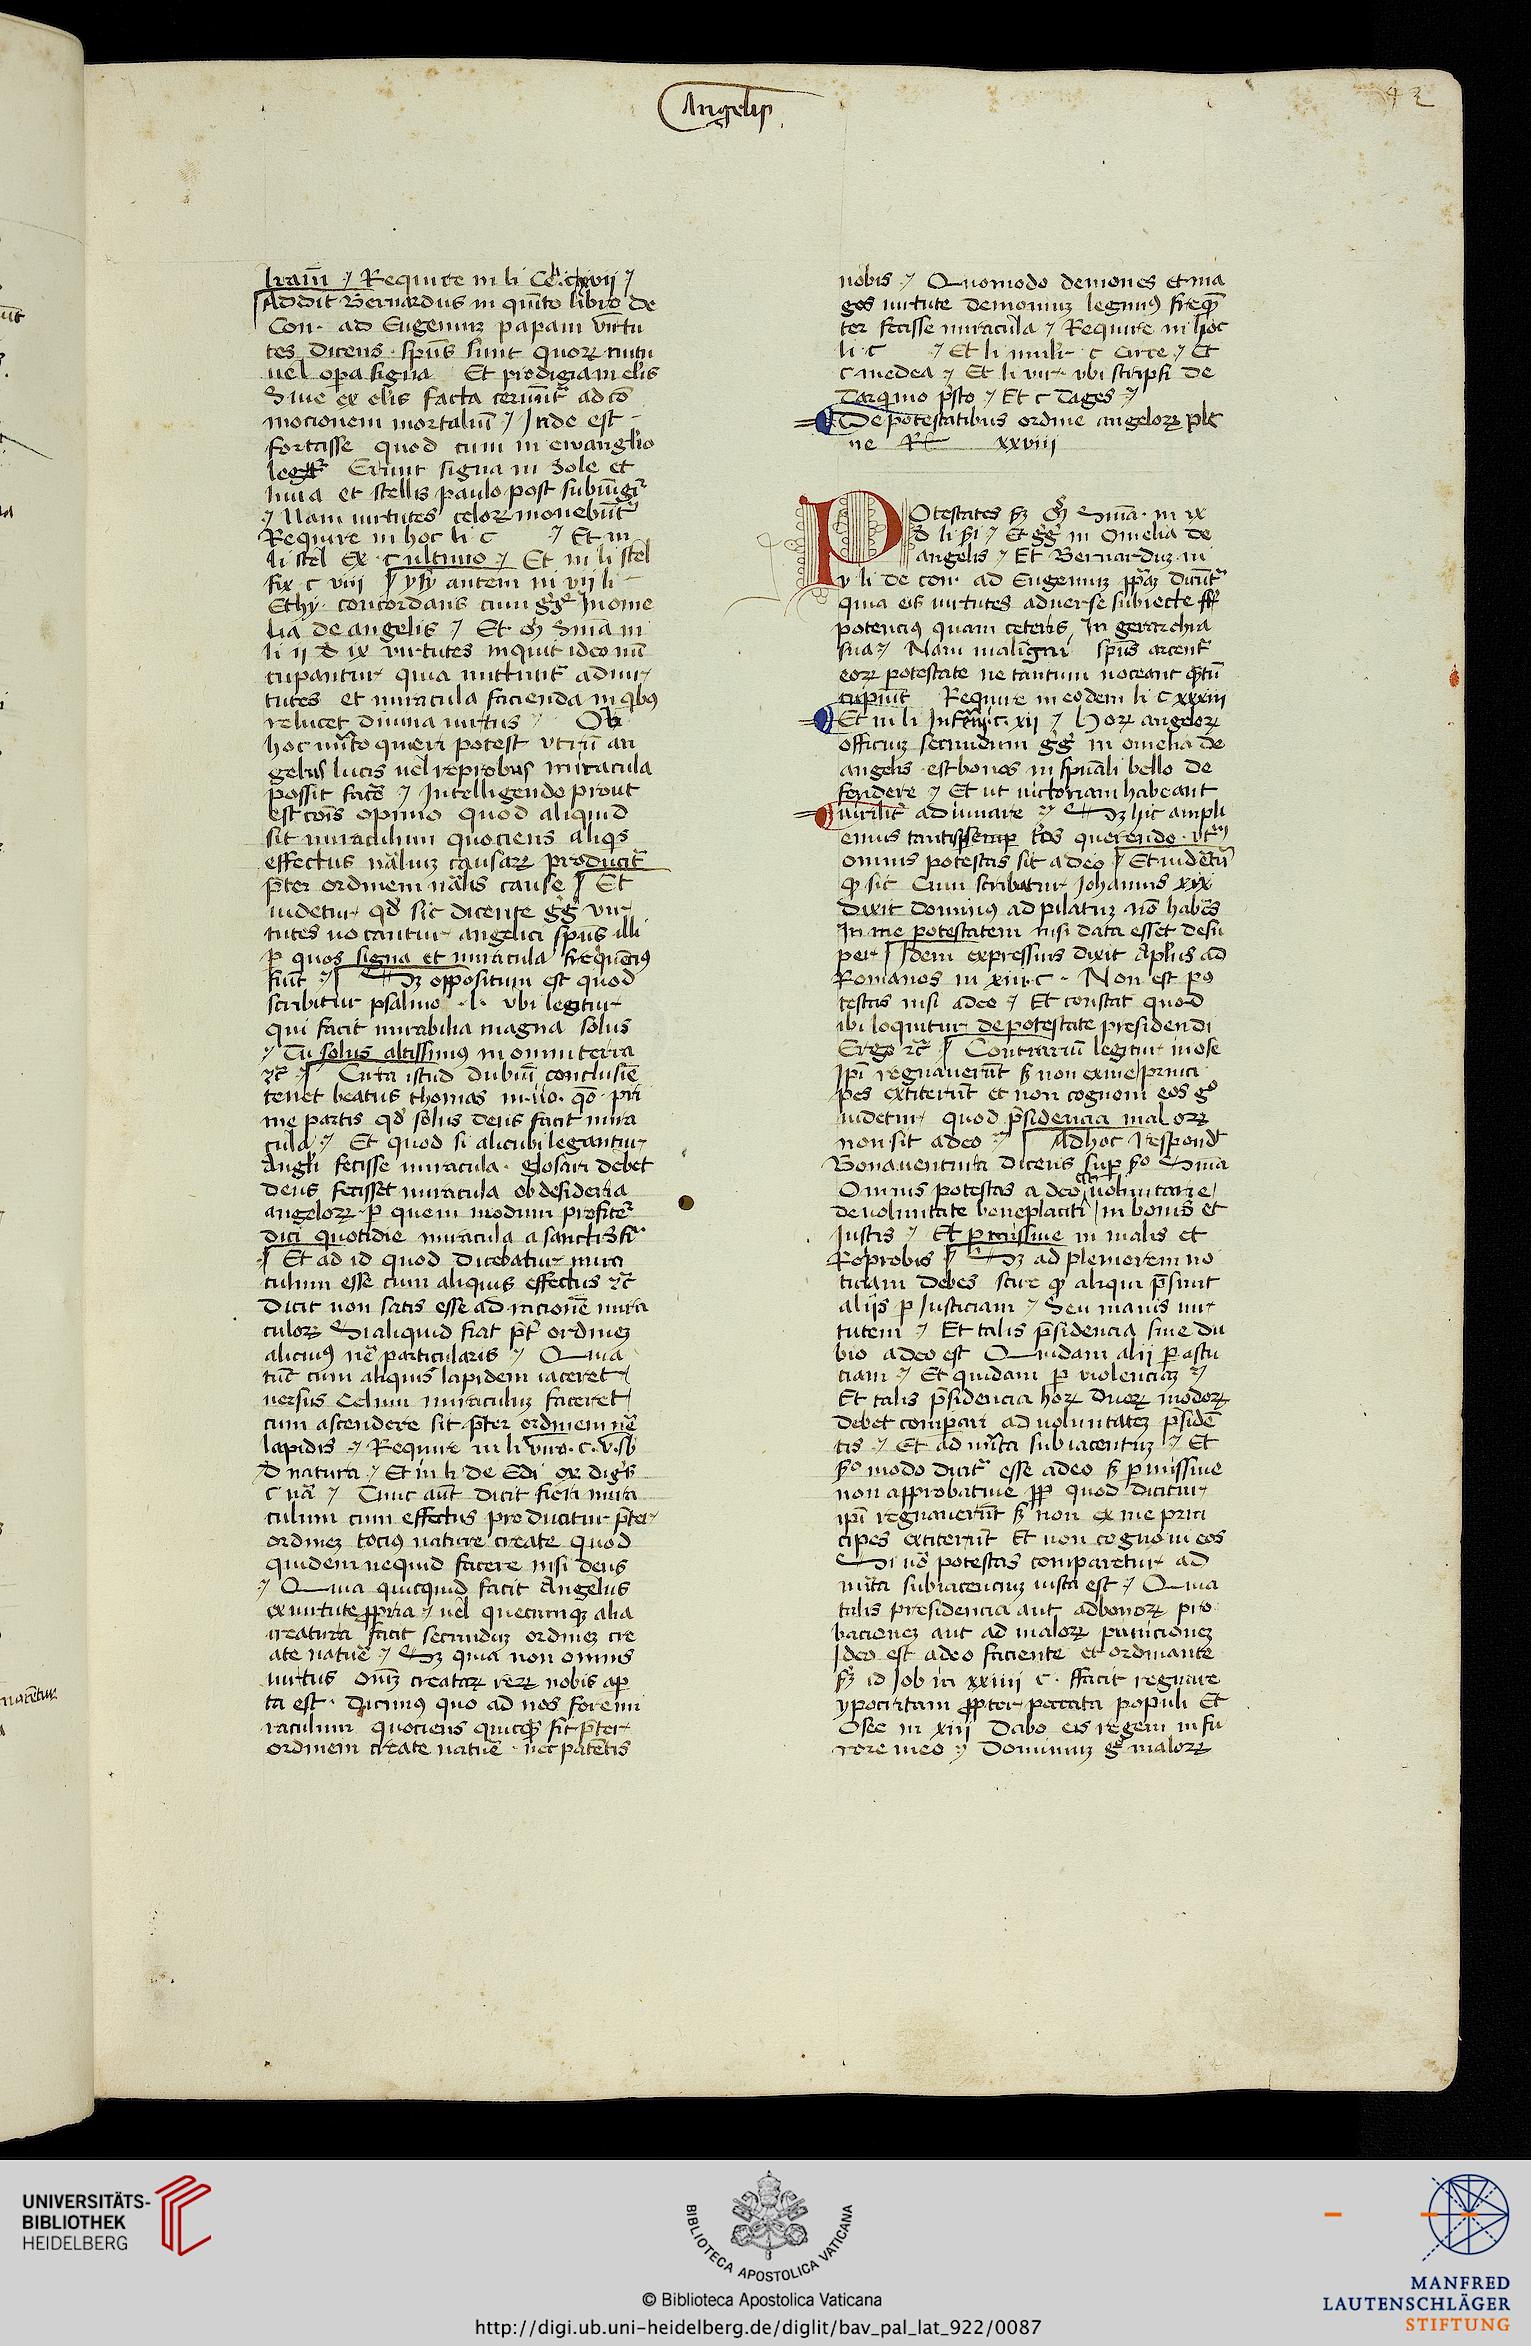 Angelis
42
Require in li
Addit Bernardus in quinto libro de
Con. ad Eugenium papam virtu
tes dicens. spūs sunt quorum nutu
uel opera signa Et prodigia in elis
Siue ex elis facta cernunt ad cō
mocionem mortaliū / Inde est
fortasse quod cum in ewanglio
Erunt signa in Sole et
luna et stellis paulo post subiungitur
/ Nam uirtutes celorum mouebunt
Require in hoc li c / Et in
li stel ex. c ultimo / Et in li stel
fix c viii / ysy autem in vii li
Ethy. concordans cum ggᵒ In ome
lia de angelis / Et
li ii d ix virtutes inquit ideo nū
cupantur quia mittunt ad uir
tutes et miracula facienda in qbus
relucet diuina uirtus / Ob
hoc queri potest utrū an
gelus lucis uel reprobus miracula
possit facē / Intelligendo prout
est cōis opinio quod aliquid
sit miraculum quociens aliqs
effectus nālium causarum producit
pter ordinem nālis cause / Et
uidetur qd sic dicente ggᵒ vir
tutes uocantur angelici spūs illi
p quos signa et miracula frequēcius
fiūt / Sz oppositum est quod
scribitur psalmo . l. vbi legitur
qui facit mirabilia magna solus
/ Tu solus altissimus in omni terra
Circa istud dubiū conclusiōe
tenet beatus thomas
me partis qd solus deus facit mira
cula / Et quod si alicubi legantur
Angli fecisse miracula. glosari debet
deus fecisset miracula ob desideria
angelorum p quem modum profiter
dici quotidie miracula a sanctis
/ Et ad id quod dicebatur mira
culum esse cum aliquis effectus
dicit non satis esse ad racionē mira
culorum Si aliquid fiat pt ordinez
alicuius nē particularis / Quia
tūc cum aliquis lapidem iaceret
uersus Celum miraculuz faceret
cum ascendere sit pter ordinem nē
lapidis / Require in li
d natura / Et in li de Edi
c nā / Tunc aut dicit fieri mira
culum cum effectus producitur pter
ordinez tocius nature create quod
quidem nequid facere nisi deus
/ Quia quicquid facit Angelus
ex uirtute ppria / uel quecumqz alia
creatura facit secundum ordinez cre
ate nature / Sz quia non omnis
uirtus omīs creatarum rerum nobis ap
ta est. Dicimus quo ad nos fore mi
raculum quociens quicquid fit pter
ordinem create nature. nec patentis
nobis / Quomodo demones et ma
gos uirtute demonum legimus frequē
ter fecisse miracula / Require in hoc
li. c / Et li muli. c Circe / Et
c medea / Et li vir. vbi scripsi de
Tarquino psto / Et c Tages /
De potestatibus ordine angelorum
ne xxviii
Potestates in ix
Et ggᵒ in Omelia de
angelis / Et Bernarduz in
v li de con. ad Eugenium papaz dicunt
quia eis uirtutes aduerse subiecte
potencius quam ceteris In gerarchia
sua / Nam maligni spūs arcent
eorum potestate ne tantum noceant qtū
cupiūt Require in eodem li c xxxiii
Et in li c. xii / Horum angelorum
officiuz secundum ggᵒ in omelia de
angelis. est bonos in spūali bello de
fendere / Et ut uictoriam habeant
uirilit adiuuare / Sz hic ampli
querendo.
omnis potestas sit a deo / Et uidetur
q sic Cum scribatur Johannis xix
dixit dominus ad pilatuz nō habēs
In me potestatem nisi data esset desu
per / Idem expressius dixit Aplus ad
Romanos in xiii. c. Non est po
testas nisi a deo / Et constat quod
ibi loquitur de potestate presidendi
Ergo Contrariū legitur in ose
Ipī regnauerūt sz non ex me princi
pes extiterunt et non cognoui eos gᵒ
uidetur quod psidencia malorum
non sit a deo / Ad hoc respond
Bonauentura dicens
Omnis potestas a deo uoluntarie
de uoluntate beneplaciti / in bonis et
Iustis / Et pmissiue in malis et
Reprobis / Sz ad pleniorem no
ticiam debes scire q aliqui psunt
aliis p Iusticiam / Seu manis uir
tutem / Et talis psidencia sine du
bio a deo est Quidam alii p astu
ciam / Et quidam p violenciaz /
Et talis psidencia horum duorum modorum
debet compari ad uoluntatez psidē
tis / Et ad subiacentium / Et
modo dicit esse a deo sz pmissiue
non approbatiue quod dicitur
ipī regnauerūt sz non ex me prin
cipes extiterūt Et non cognoui eos
Si uᵒ potestas comparetur ad
subiacencium iusta est / Quia
talis presidencia aut ad bonorum pro
bacionez aut ad malorum punicionez
Ideo est a deo faciente et ordinante
id Job in xxiiii c. ffacit regnare
ypocritam ppter peccata populi Et
Osee in xiii Dabo eis regem in fu
rore meo / Dominium gᵒ malorum
UNIVERSITÄTS-
BIBLIOTHEK
HEIDELBERG
BIBLIOTECA APOSTOLICA VATICANA
© Biblioteca Apostolica Vaticana
http://digi.ub.uni-heidelberg.de/diglit/bav_pal_lat_922/0087
MANFRED
LAUTENSCHLÄGER
STIFTUNG